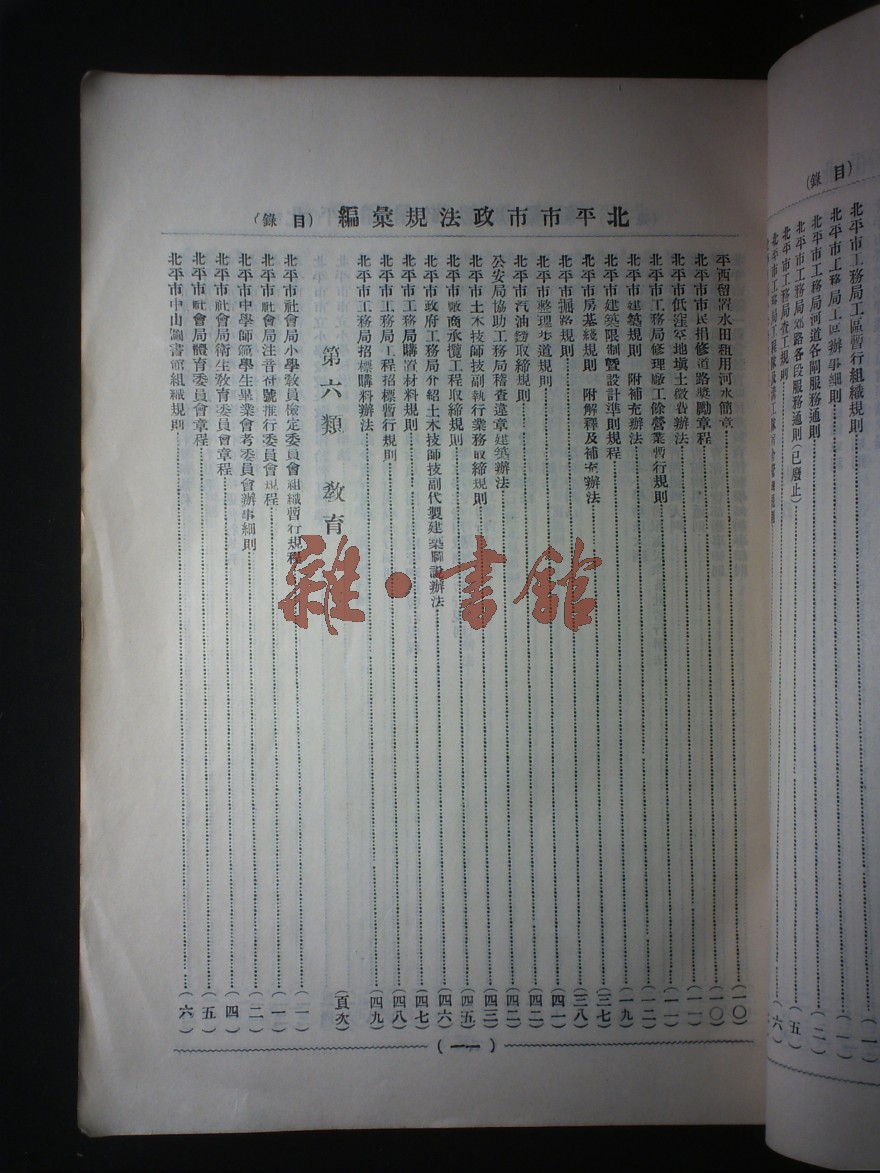 （目錄）
北平市工務局工區暫行組織規則
北平市工務局工區辦事細則
北平市工務局河道各閘服務通則
北平市工務局道路各段服務通則(已廢止)
北平市工務局查工規則
北平市市政法規彙編（目錄）
平西留置水田租用河水簡章（一〇）
北平市市民捐修道路獎勵章程（一〇）
北平市低窪空地填土徵費辦法（一一）
北平市工務局修理廠工餘營業暫行規則（一二）
北平市建築規則　附補充辦法（一九）
北平市建築限制暨設計準則規程（三七）
北平市房基綫規則　附解釋及補充辦法（三八）
北平市掘路規則（四一）
北平市整理步道規則（四二）
北平市汽油營取締規則（四二）
公安局協助工務局稽查違章建築辦法（四三）
北平市土木技師技副執行業務取締規則（四五）
北平市廠商承攬工程取締規則（四六）
北平市政府工務局介紹土木技師技副代製建築圖說辦法
北平市工務局購置材料規則（四七）
北平市工務局工程招標暫行規則（四八）
北平市工務局招標購料辦法（四九）
第六類　教育（頁次）
北平市社會局小學教員檢定委員會組織暫行規程（一）
北平市社會局注音符號推行委員會規程（一）
北平市中學師範學生畢業會考委員會辦事細則（二）
北平市社會局衛生教育委員會章程（四）
北平市社會局體育委員會章程（五）
北平市中山圖書館組織規則（六）
（一一）
雜·書館